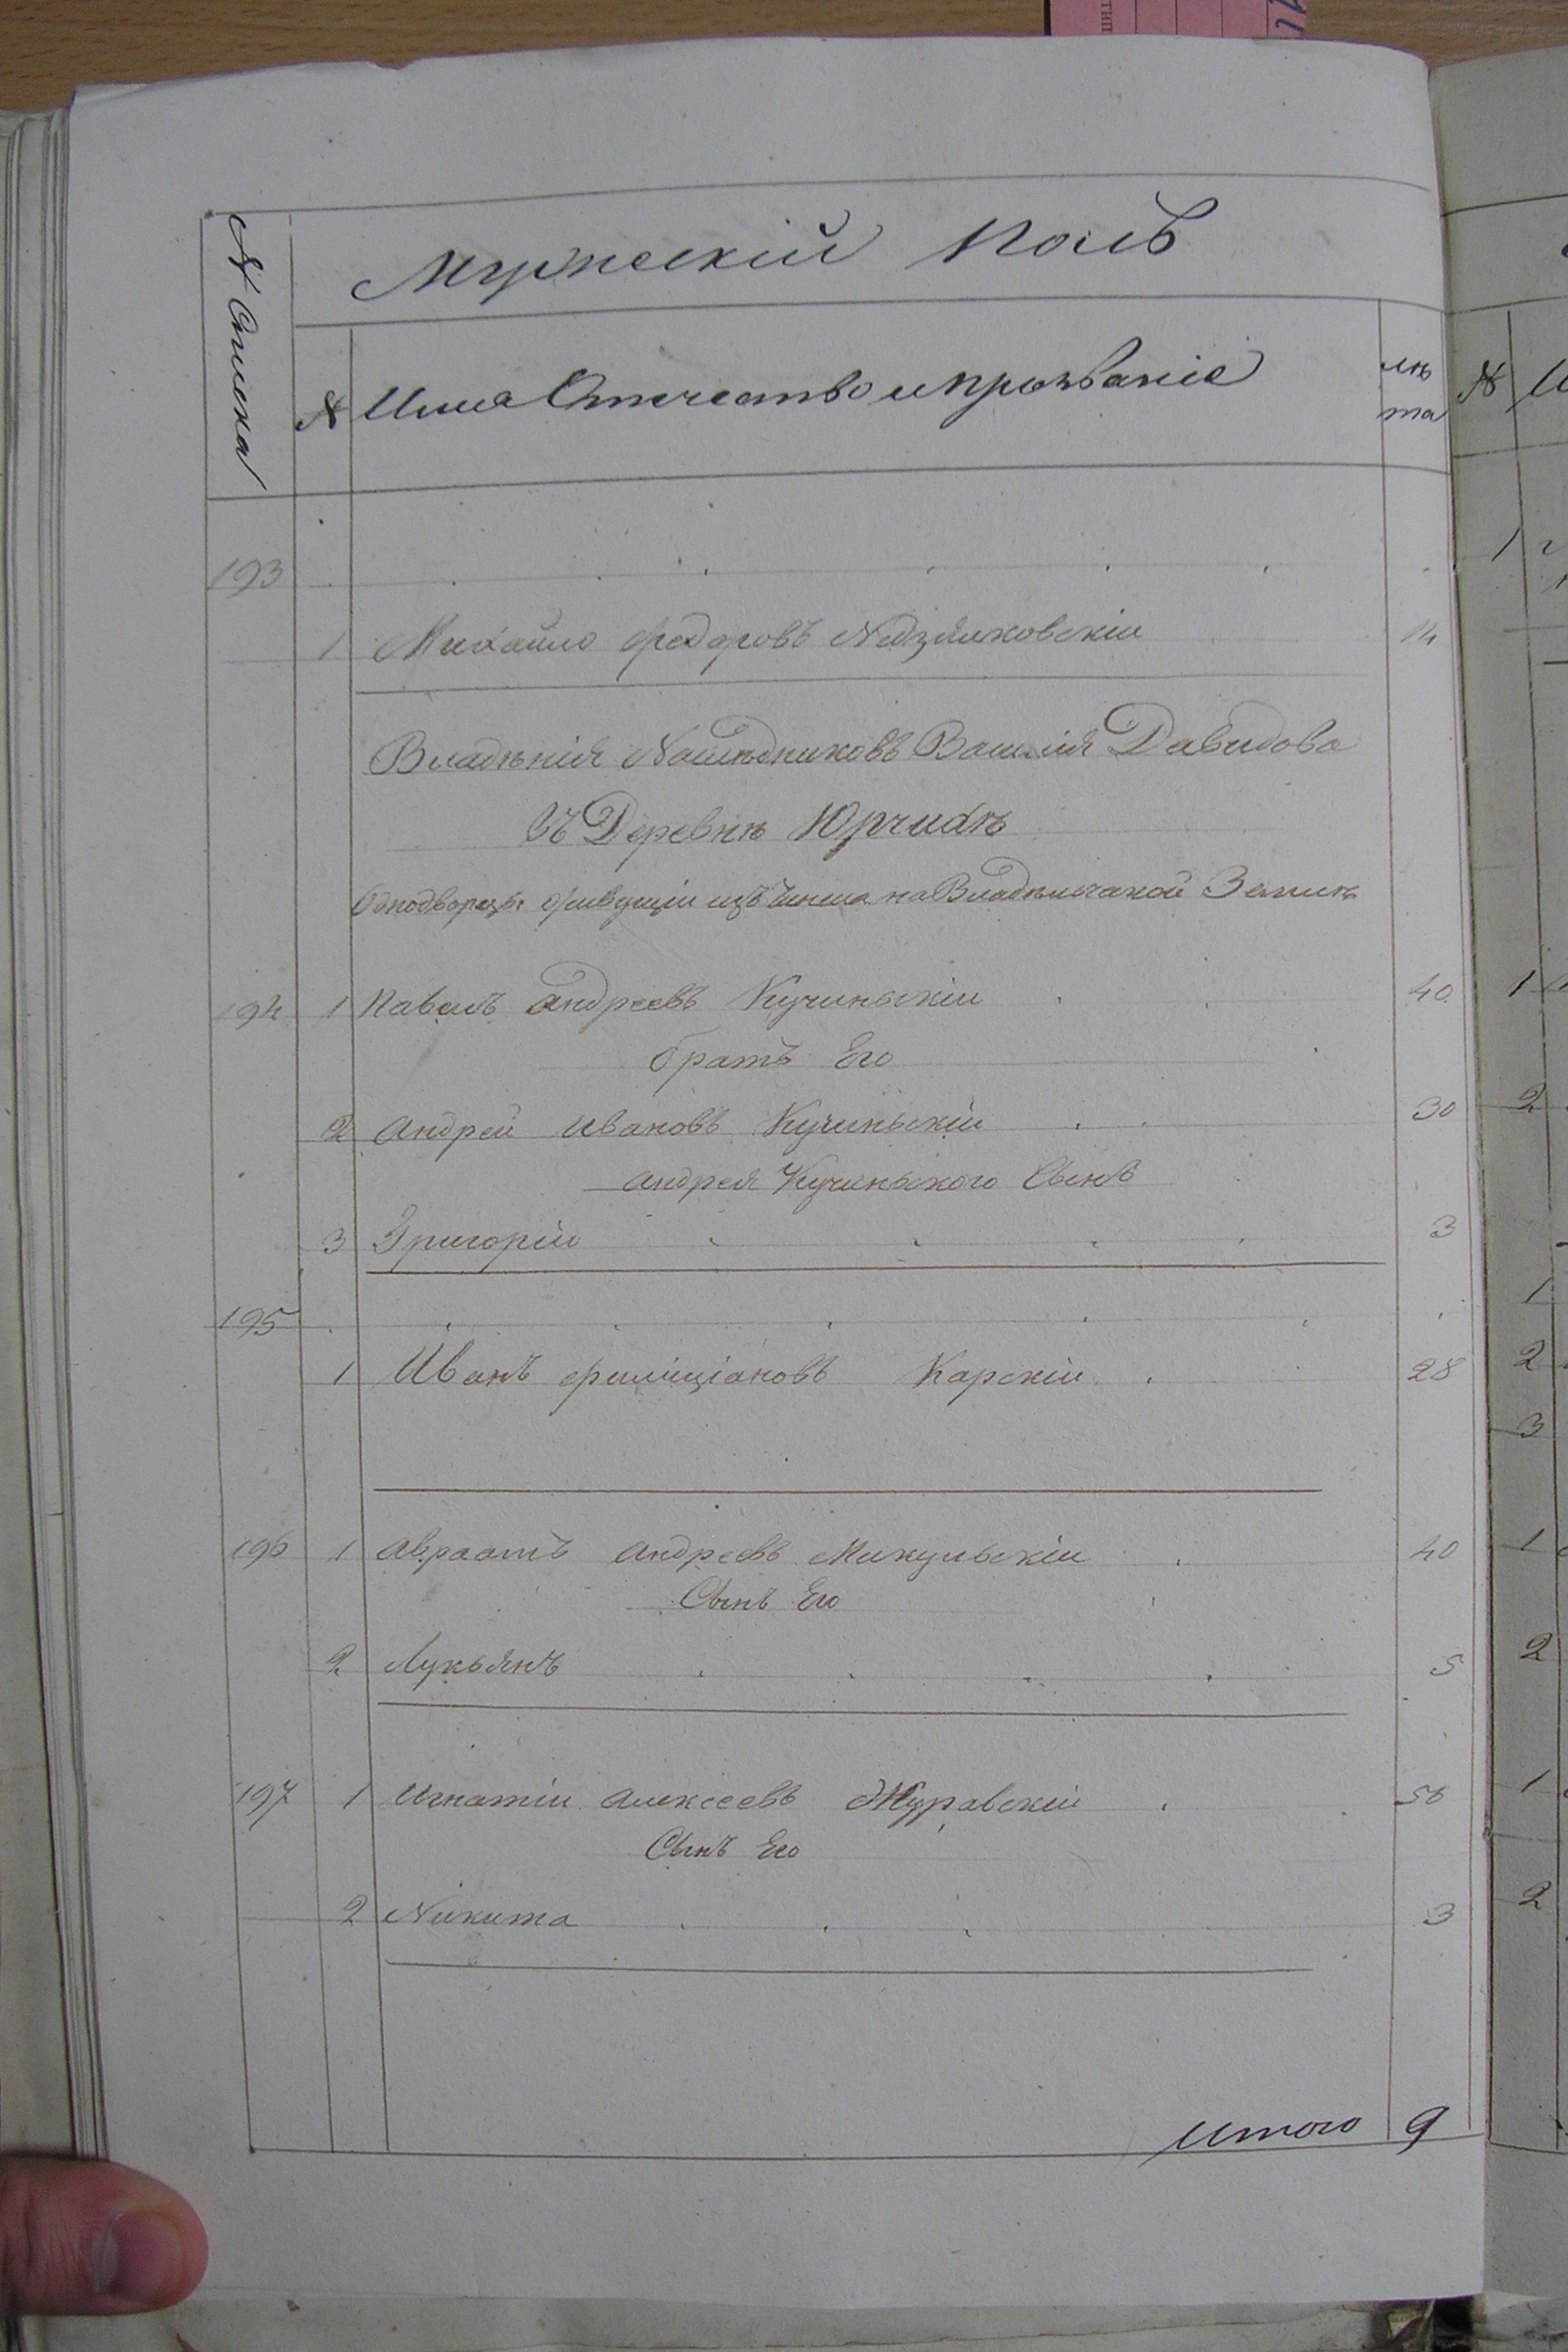 № Списка
Мужескій Полъ
№ Имя Отчество и прозваніе лѣ
та
193
1 Михайло Федоровъ Недзялковскіи 14
Владѣнія Наслѣдниковъ Василія Давидова
Въ Деревнѣ Юрчихѣ
Однодворцы живущіи изъ чинша на Владѣльческой Землѣ
194 1 Павелъ Андреевъ Кучиньскіи 40
братъ Его
2 Андреи Ивановъ Кучиньскіи 30
Андрея Кучиньского Сынъ
3 Григоріи 3
195
1 Иванъ Филиціановъ Карскіи 28
196 1 Авраамъ Андреевъ Микульскіи 40
Сынъ Его
2 Лукьянъ 5
197 1 Игнатіи Алексеевъ Журавскіи 56
Сынъ Его
2 Никита 3
Итого 9